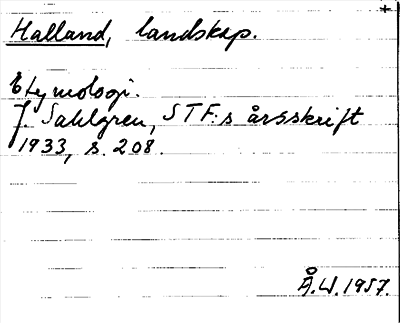 +
Halland, landskap.
Etymologi.
J. Sahlgren, STF:s årsskrift
1933, s. 208.
Å.W. 1957.